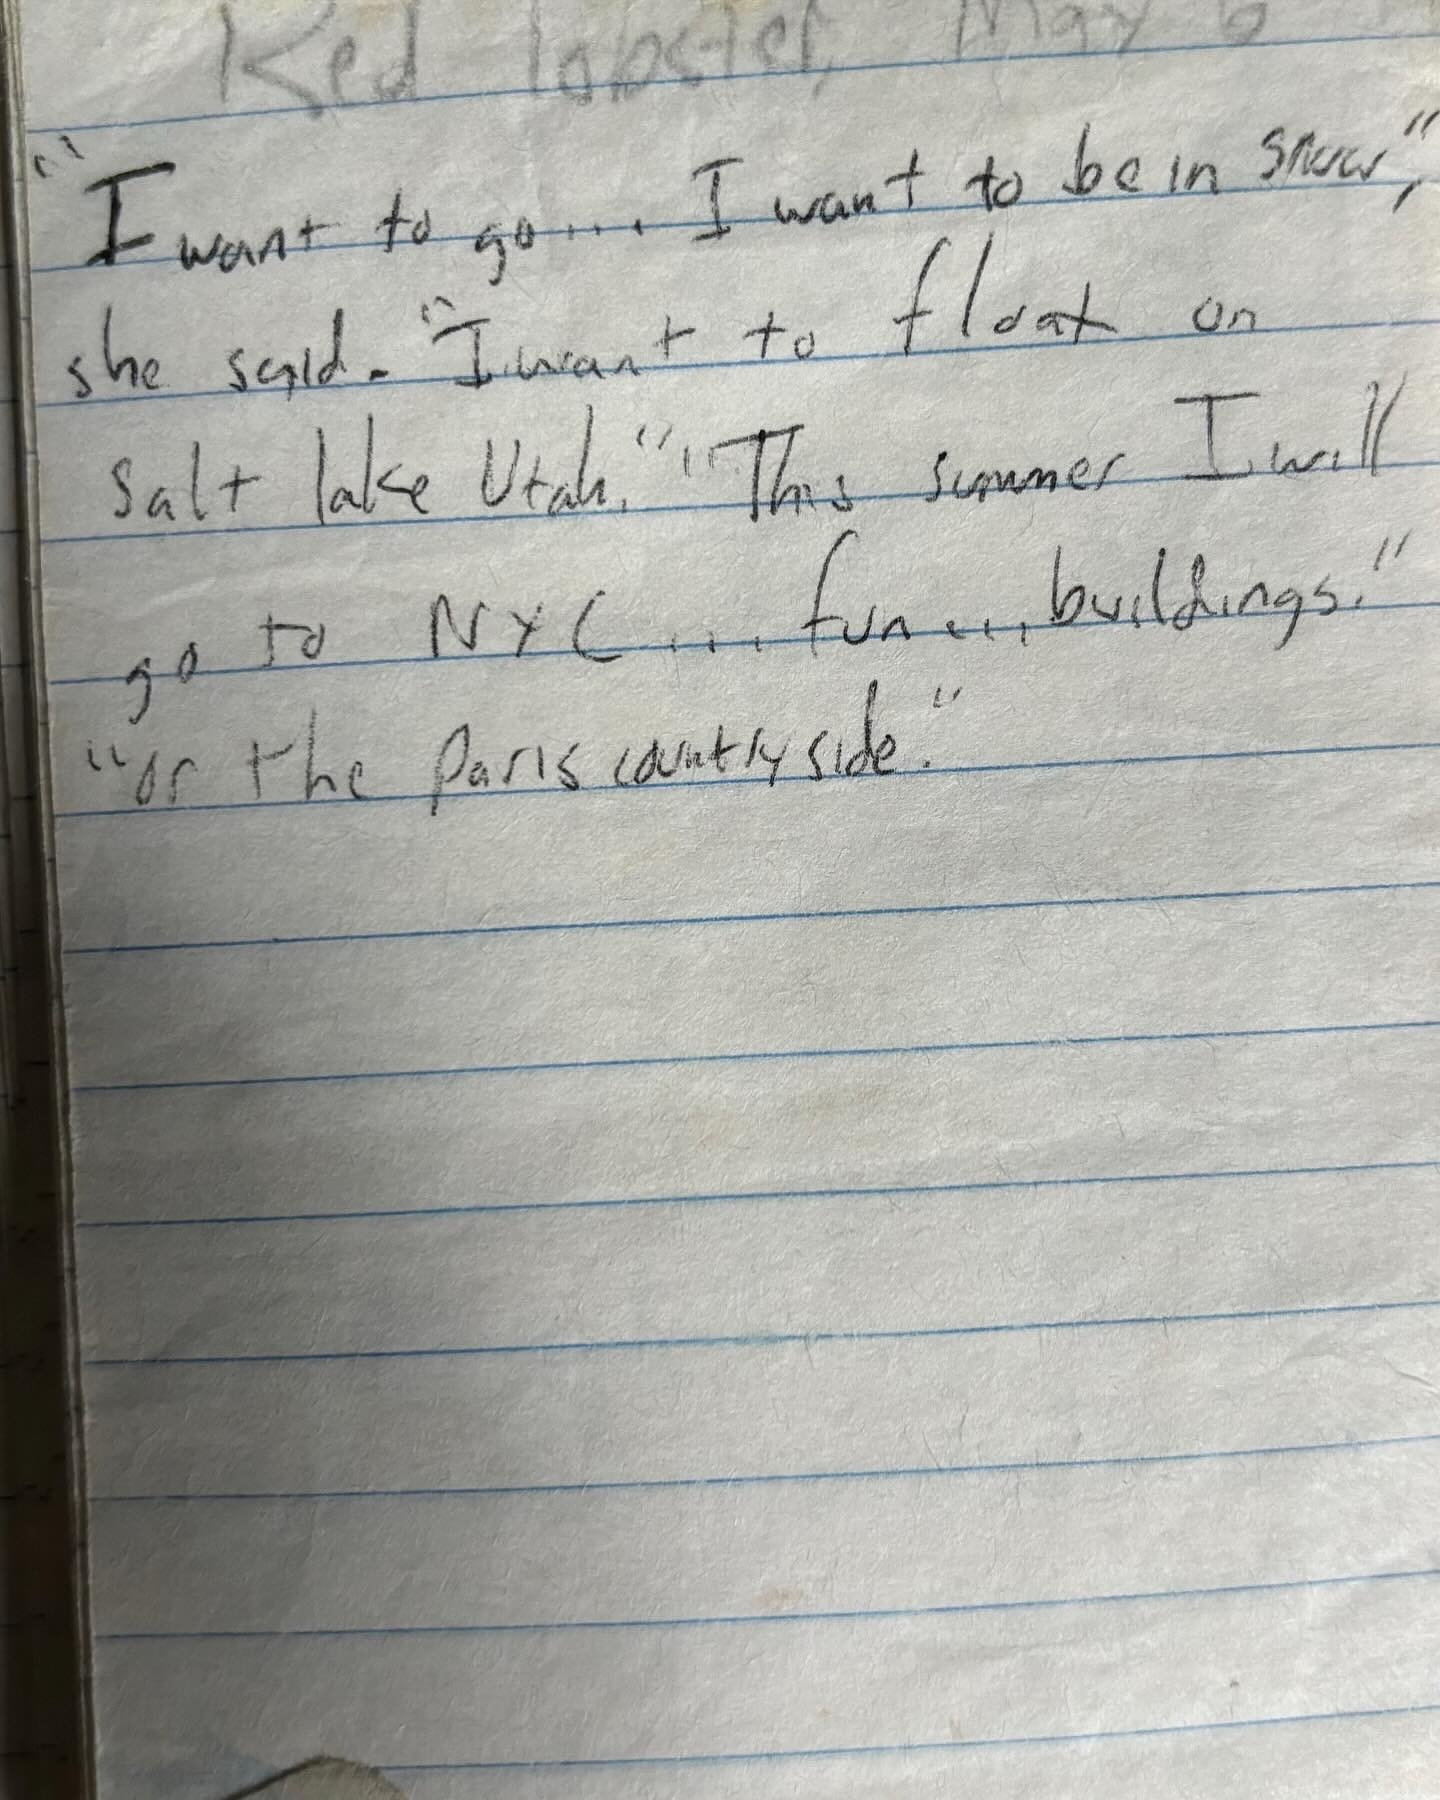 Red lobster, May 6
"I want to go.... I want to be in snow,"
she said. "I want to float on
Salt lake Utah." "This summer I will
go to NYC .... fun .... buildings."
"or the Paris countryside."